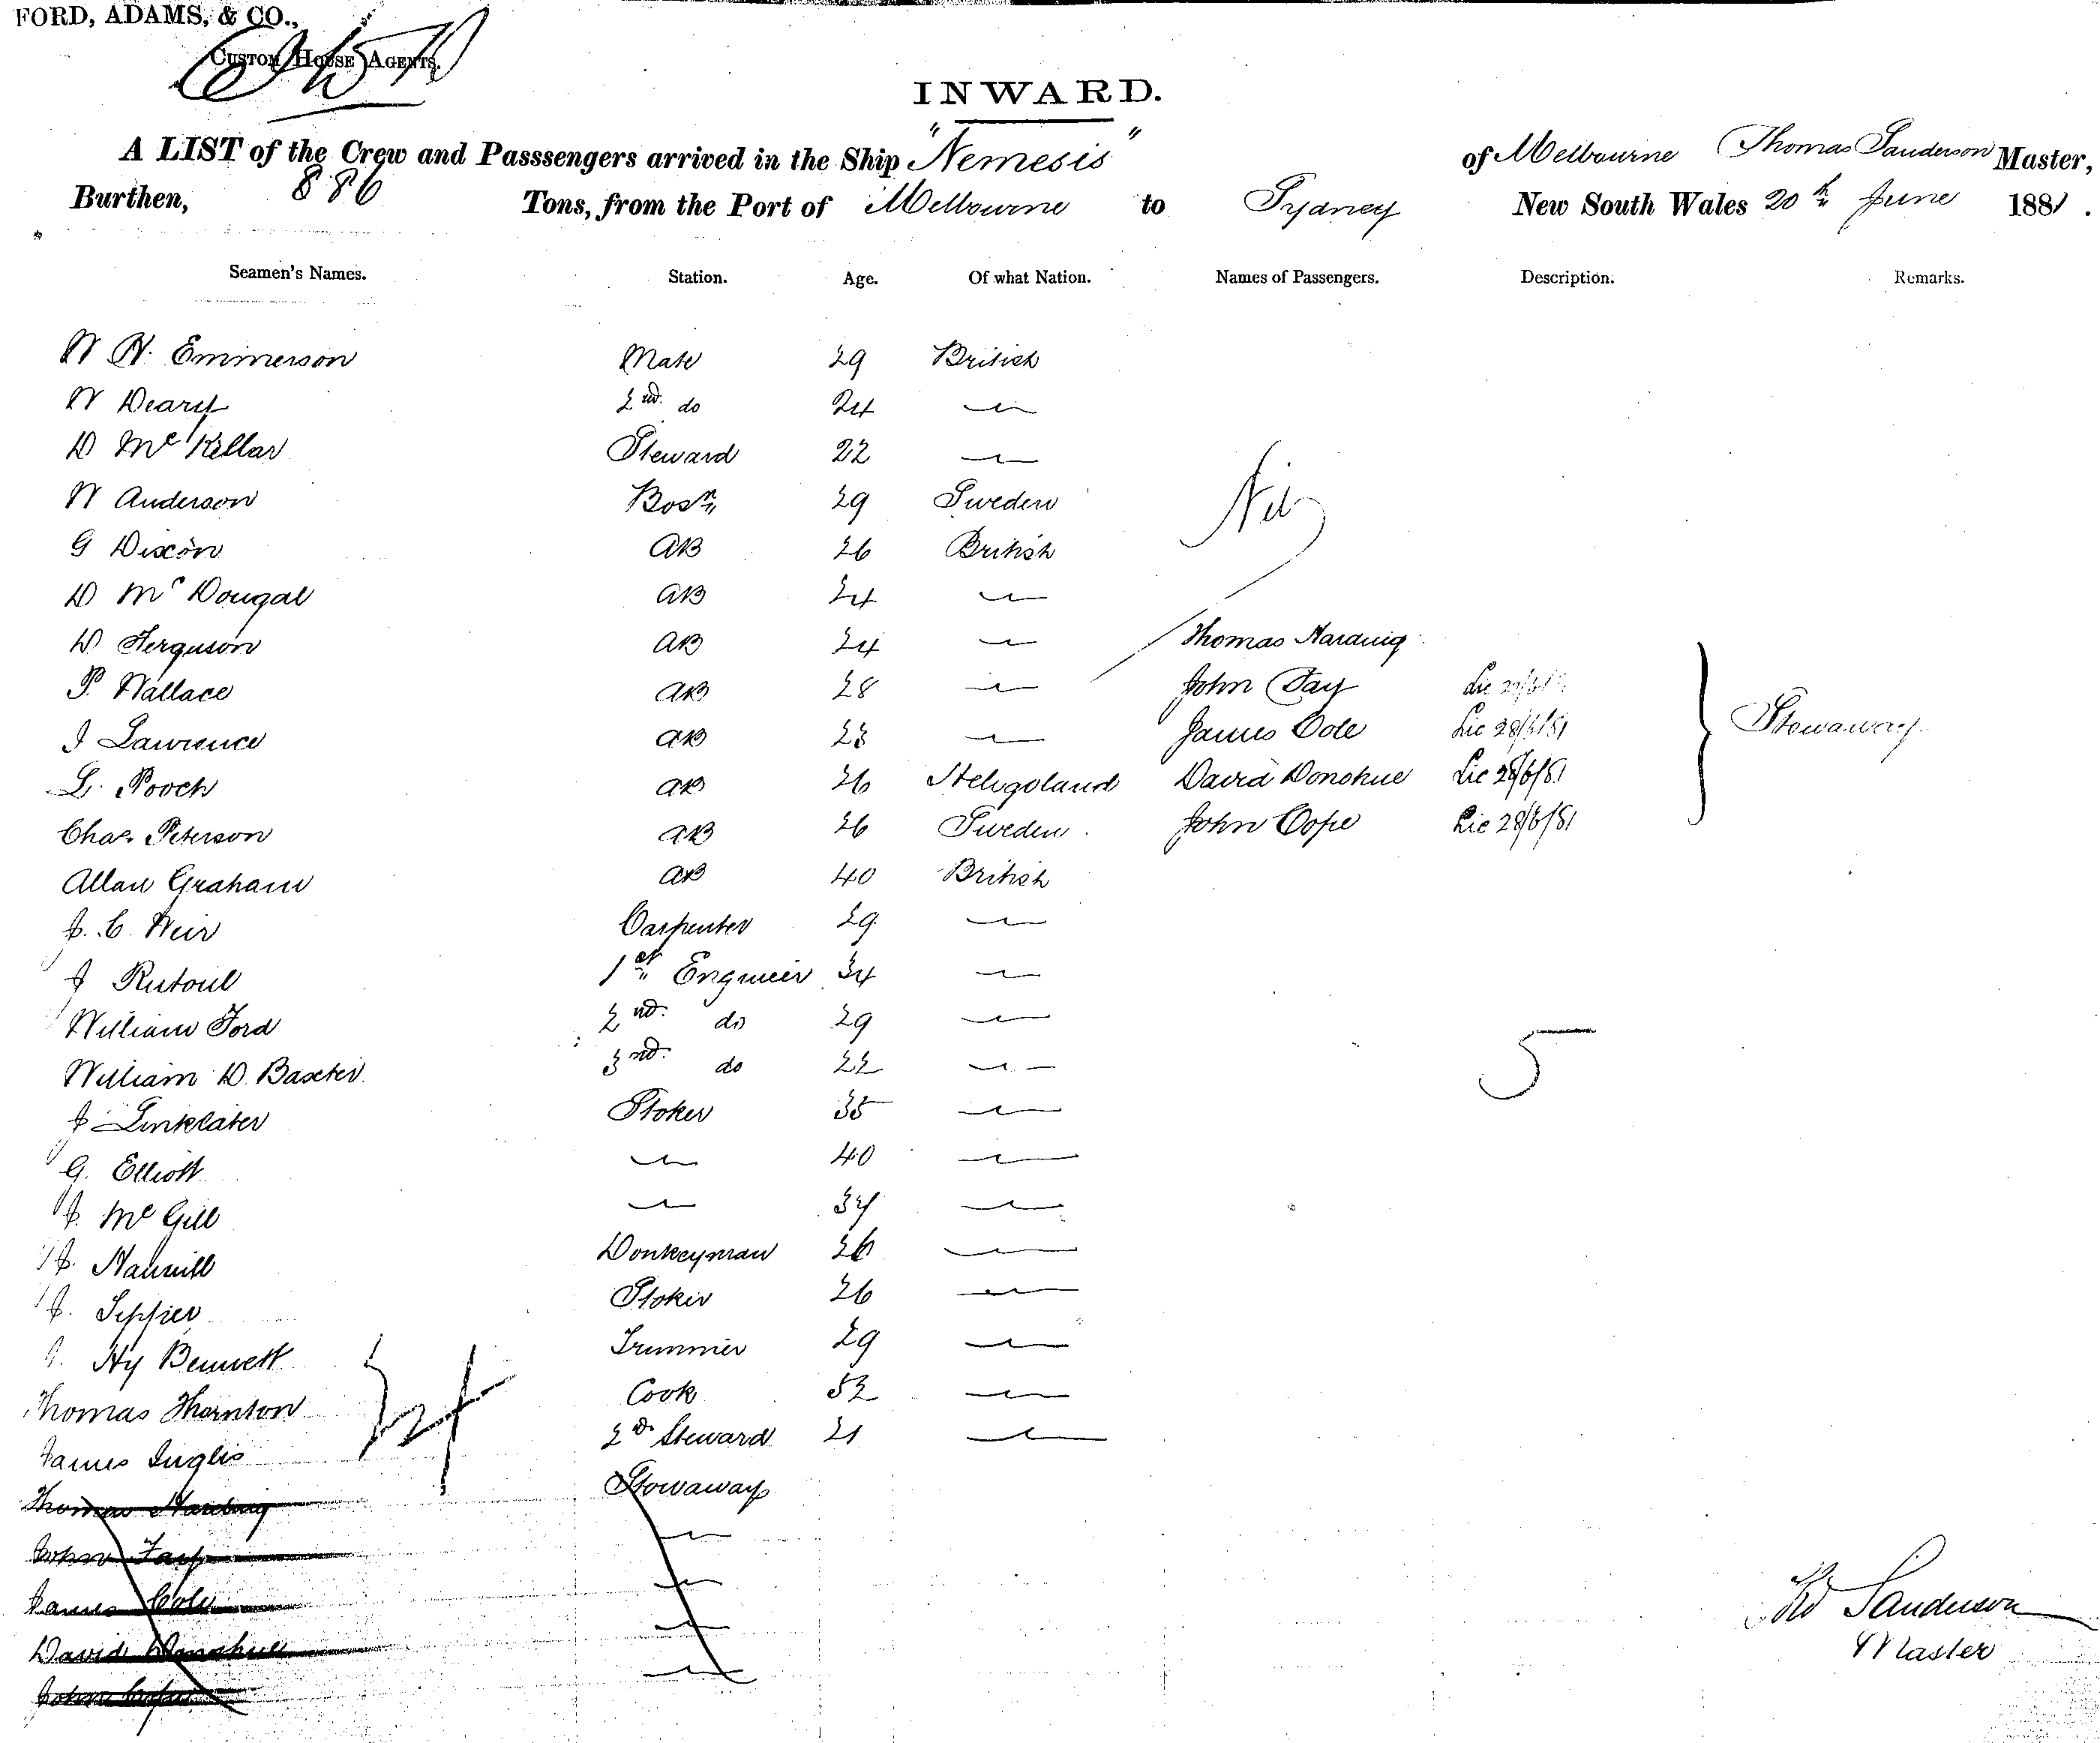 FORD, ADAMS, & CO.,
CUSTOM HOUSE AGENTS.
INWARD.
A LIST of the Crew and Passsengers arrived in the Ship "Nemesis" of Melbourne Thomas Sanderson Master,
Burthen, 886 Tons, from the Port of Melbourne to Sydney New South Wales 20th June 1881.
Seamen's Names. Station. Age. Of what Nation. Names of Passengers. Description. Remarks.
W H. Emmerson Mate 29 British
W Deary 2nd. do 24 —
D Mc Kellar Steward 22 —
W Anderson Bosn 29 Sweden Nil
G Dixon AB 26 British
D Mc Dougal AB 24 —
D Ferguson AB 24 — Thomas Harding
P. Wallace AB 28 — John Fay Lic
J Lawrence AB 23 — James Cole Lic 28/6/81 Stowaways
L. Pooch AB 26 Heligoland David Donohue Lic 28/6/81
Chas. Peterson AB 26 Sweden John Cope Lic 28/6/81
Allan Graham AB 40 British
J. C. Weir Carpenter 29 —
J Rutoul 1st Engineer 34 —
William Ford 2nd. do 29 —
William D. Baxter 3rd. do 22 — 5
J Linklater Stoker 35 —
G. Elliott — 40 —
J. Mc Gill — 34 —
J. Donkeyman 26 —
J. Stoker 26 —
Hy Bennett Trimmer 29 —
Thomas Thornton 24 Cook 52 —
James Inglis 2d Steward 21 —
Thomas Harding Stowaway
John Fay —
James Cole —
David Donohue —
John Cope —
Thos Sanderson
Master